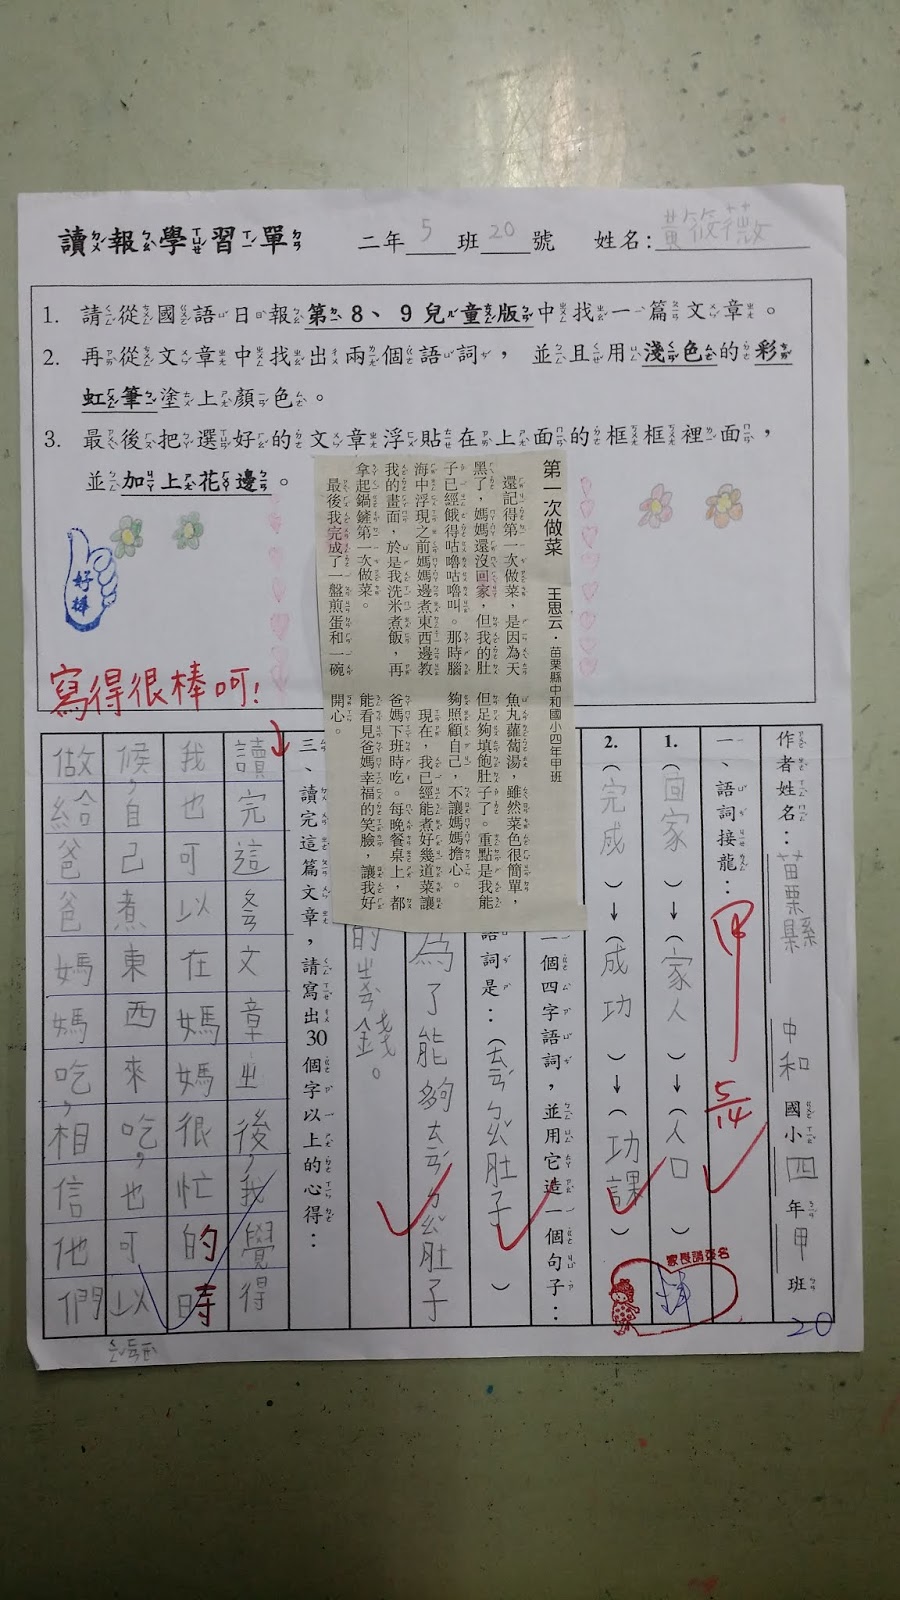 讀報學習單 二年5班20號 姓名:黃筱薇
1. 請從國語日報第8、9兒童版中找一篇文章。
2. 再從文章中找出兩個語詞，並且用淺色的彩
虹筆塗上顏色。
3. 最後把選好的文章浮貼在上面的框框裡面，
並加上花邊。
好棒
寫得很棒呵!
第一次做菜 王思云．苗栗縣中和國小四年甲班
還記得第一次做菜，是因為天
黑了，媽媽還沒回家，但我的肚
子已經餓得咕嚕咕嚕叫。那時腦
海中浮現之前媽媽邊煮東西邊教
我的畫面，於是我洗米煮飯，再
拿起鍋鏟第一次做菜。
最後我完成了一盤煎蛋和一碗
魚丸蘿蔔湯，雖然菜色很簡單，
但足夠填飽肚子了。重點是我能
夠照顧自己，不讓媽媽擔心。
現在，我已經能煮好幾道菜讓
爸媽下班時吃。每晚餐桌上，都
能看見爸媽幸福的笑臉，讓我好
開心。
作者姓名：苗栗縣 中和國小四年甲班
20
一、語詞接龍：
甲
5/14
1.（回家）→（家人）→（人口）
2.（完成）→（成功）→（功課）
家長請簽名
一個四字語詞，並用它造一個句子：
語詞是：（ㄊㄧㄢˊㄅㄠˇ肚子）
為了能夠ㄊㄧㄢˊㄅㄠˇ肚子
三、讀完這篇文章，請寫出30個字以上的心得：
讀完這ㄆㄧㄢ文章ㄓ後，我覺得
我也可以在媽媽很忙的時
候，自己煮東西來吃，也可以
做給爸爸媽媽吃，相信他們